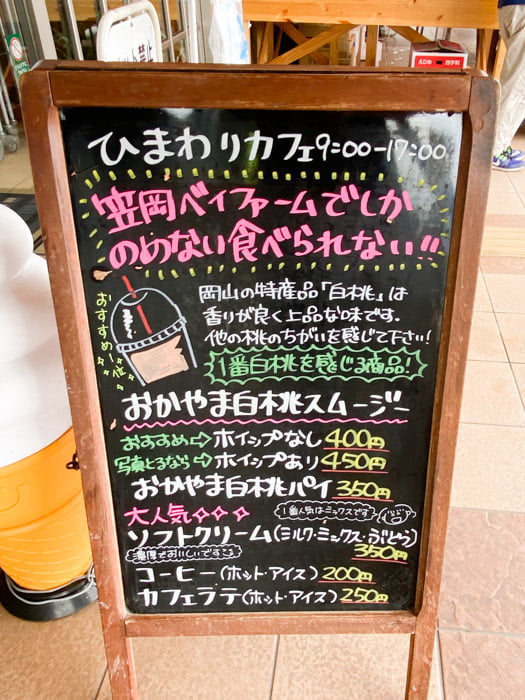 ひまわりカフェ9:00-17:00
笠岡ベイファームでしか
のめない食べられない!!
おすすめ1位
岡山の特産品「白桃」は
香りが良く上品な味です。
他の桃のちがいを感じて下さい!
1番白桃を感じる商品!
おかやま白桃スムージー
おすすめ⇨ホイップなし400円
写真とるなら⇨ホイップあり450円
おかやま白桃パイ350円
大人気 1番人気はミックスです
ソフトクリーム(ミルク・ミックス・ぶどう)
濃厚でおいしいですよ 350円
コーヒー(ホット・アイス)200円
カフェラテ(ホット・アイス)250円